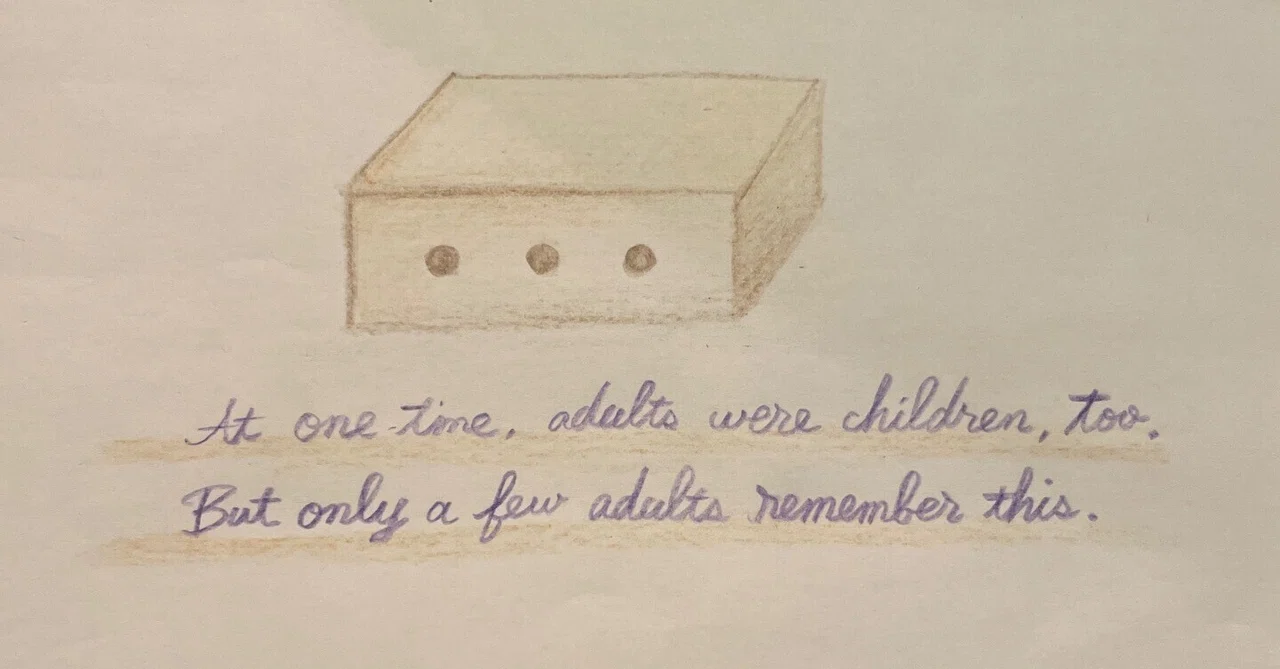 At one time, adults were children, too.
But only a few adults remember this.